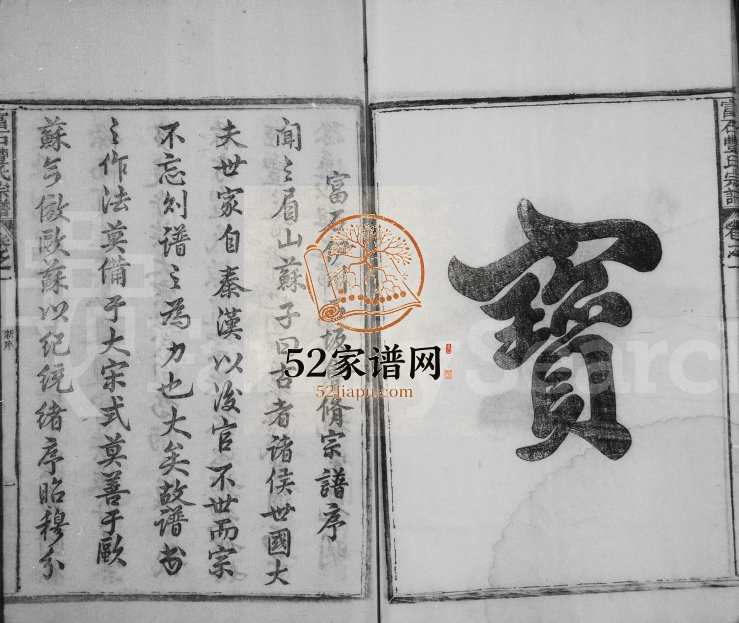 寶
富石
脩宗譜序
聞之眉山蘇子曰古者諸侯世國大
夫世家自秦漢以後官不世而宗
不忘則譜之為力也大矣故譜書
之作法莫備于大宗式莫善于歐
蘇兮倣歐蘇以紀統緒序昭穆分
富石豐氏宗譜 卷之一
新序
一
52家谱网
52jiapu.com
Family Search